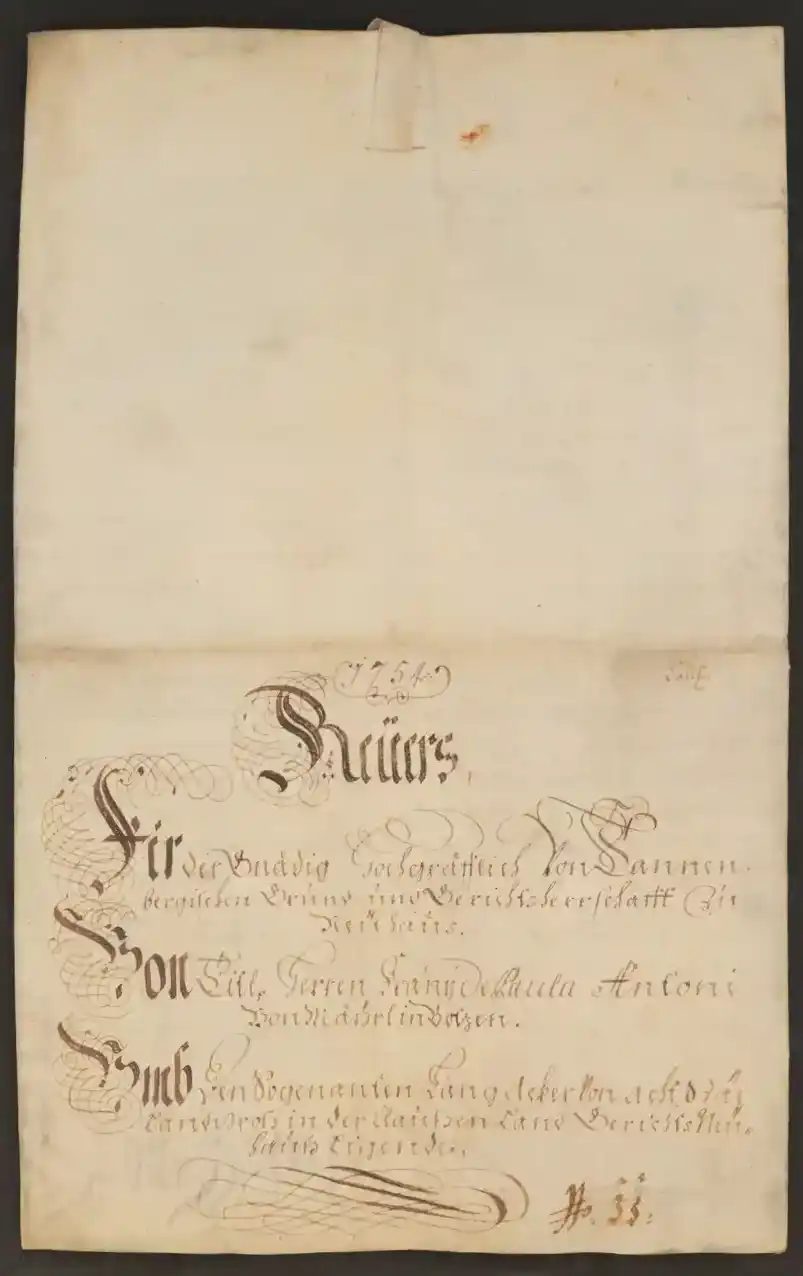 1754
Reüers,
Für der Gnädig Hochgräfflich Von Tannen-
bergischen Grund und Gerichtsherrschafft Zu
Neühaüs.
Von Titl. Herren Franz De Paula Antoni
Von Mährl in Bolzen.
Umb Den Sogenanten Lang Acker Von
in der Land Gerichts Neü-
haüs Ligende.
No. 33.